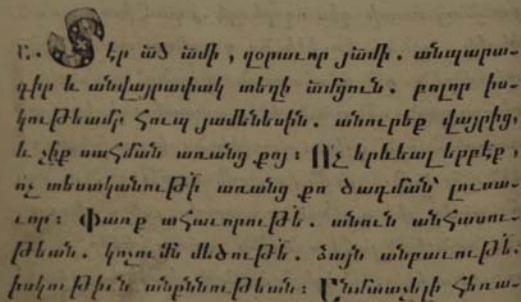 Տէր ած ամի, զօրաւոր յամի. անպարա-
գիր և անվայրափակ տեղի ամցուն. բոլոր իս-
կութեամբ հուպ յամենեսին. անուրեք վայրից,
և չիք սահման առանց քոյ։ Ոչ երևեալ երբէք,
ոչ տեսականութի առանց քո ծագման՝ լուսա-
ւոր։ Փառք ահաւորութե. անուն անհասու-
թեան. կոչումն մեծութե. ձայն անբաւութե.
իսկութիւն անքննութեան։ Անմատչելի հեռա-